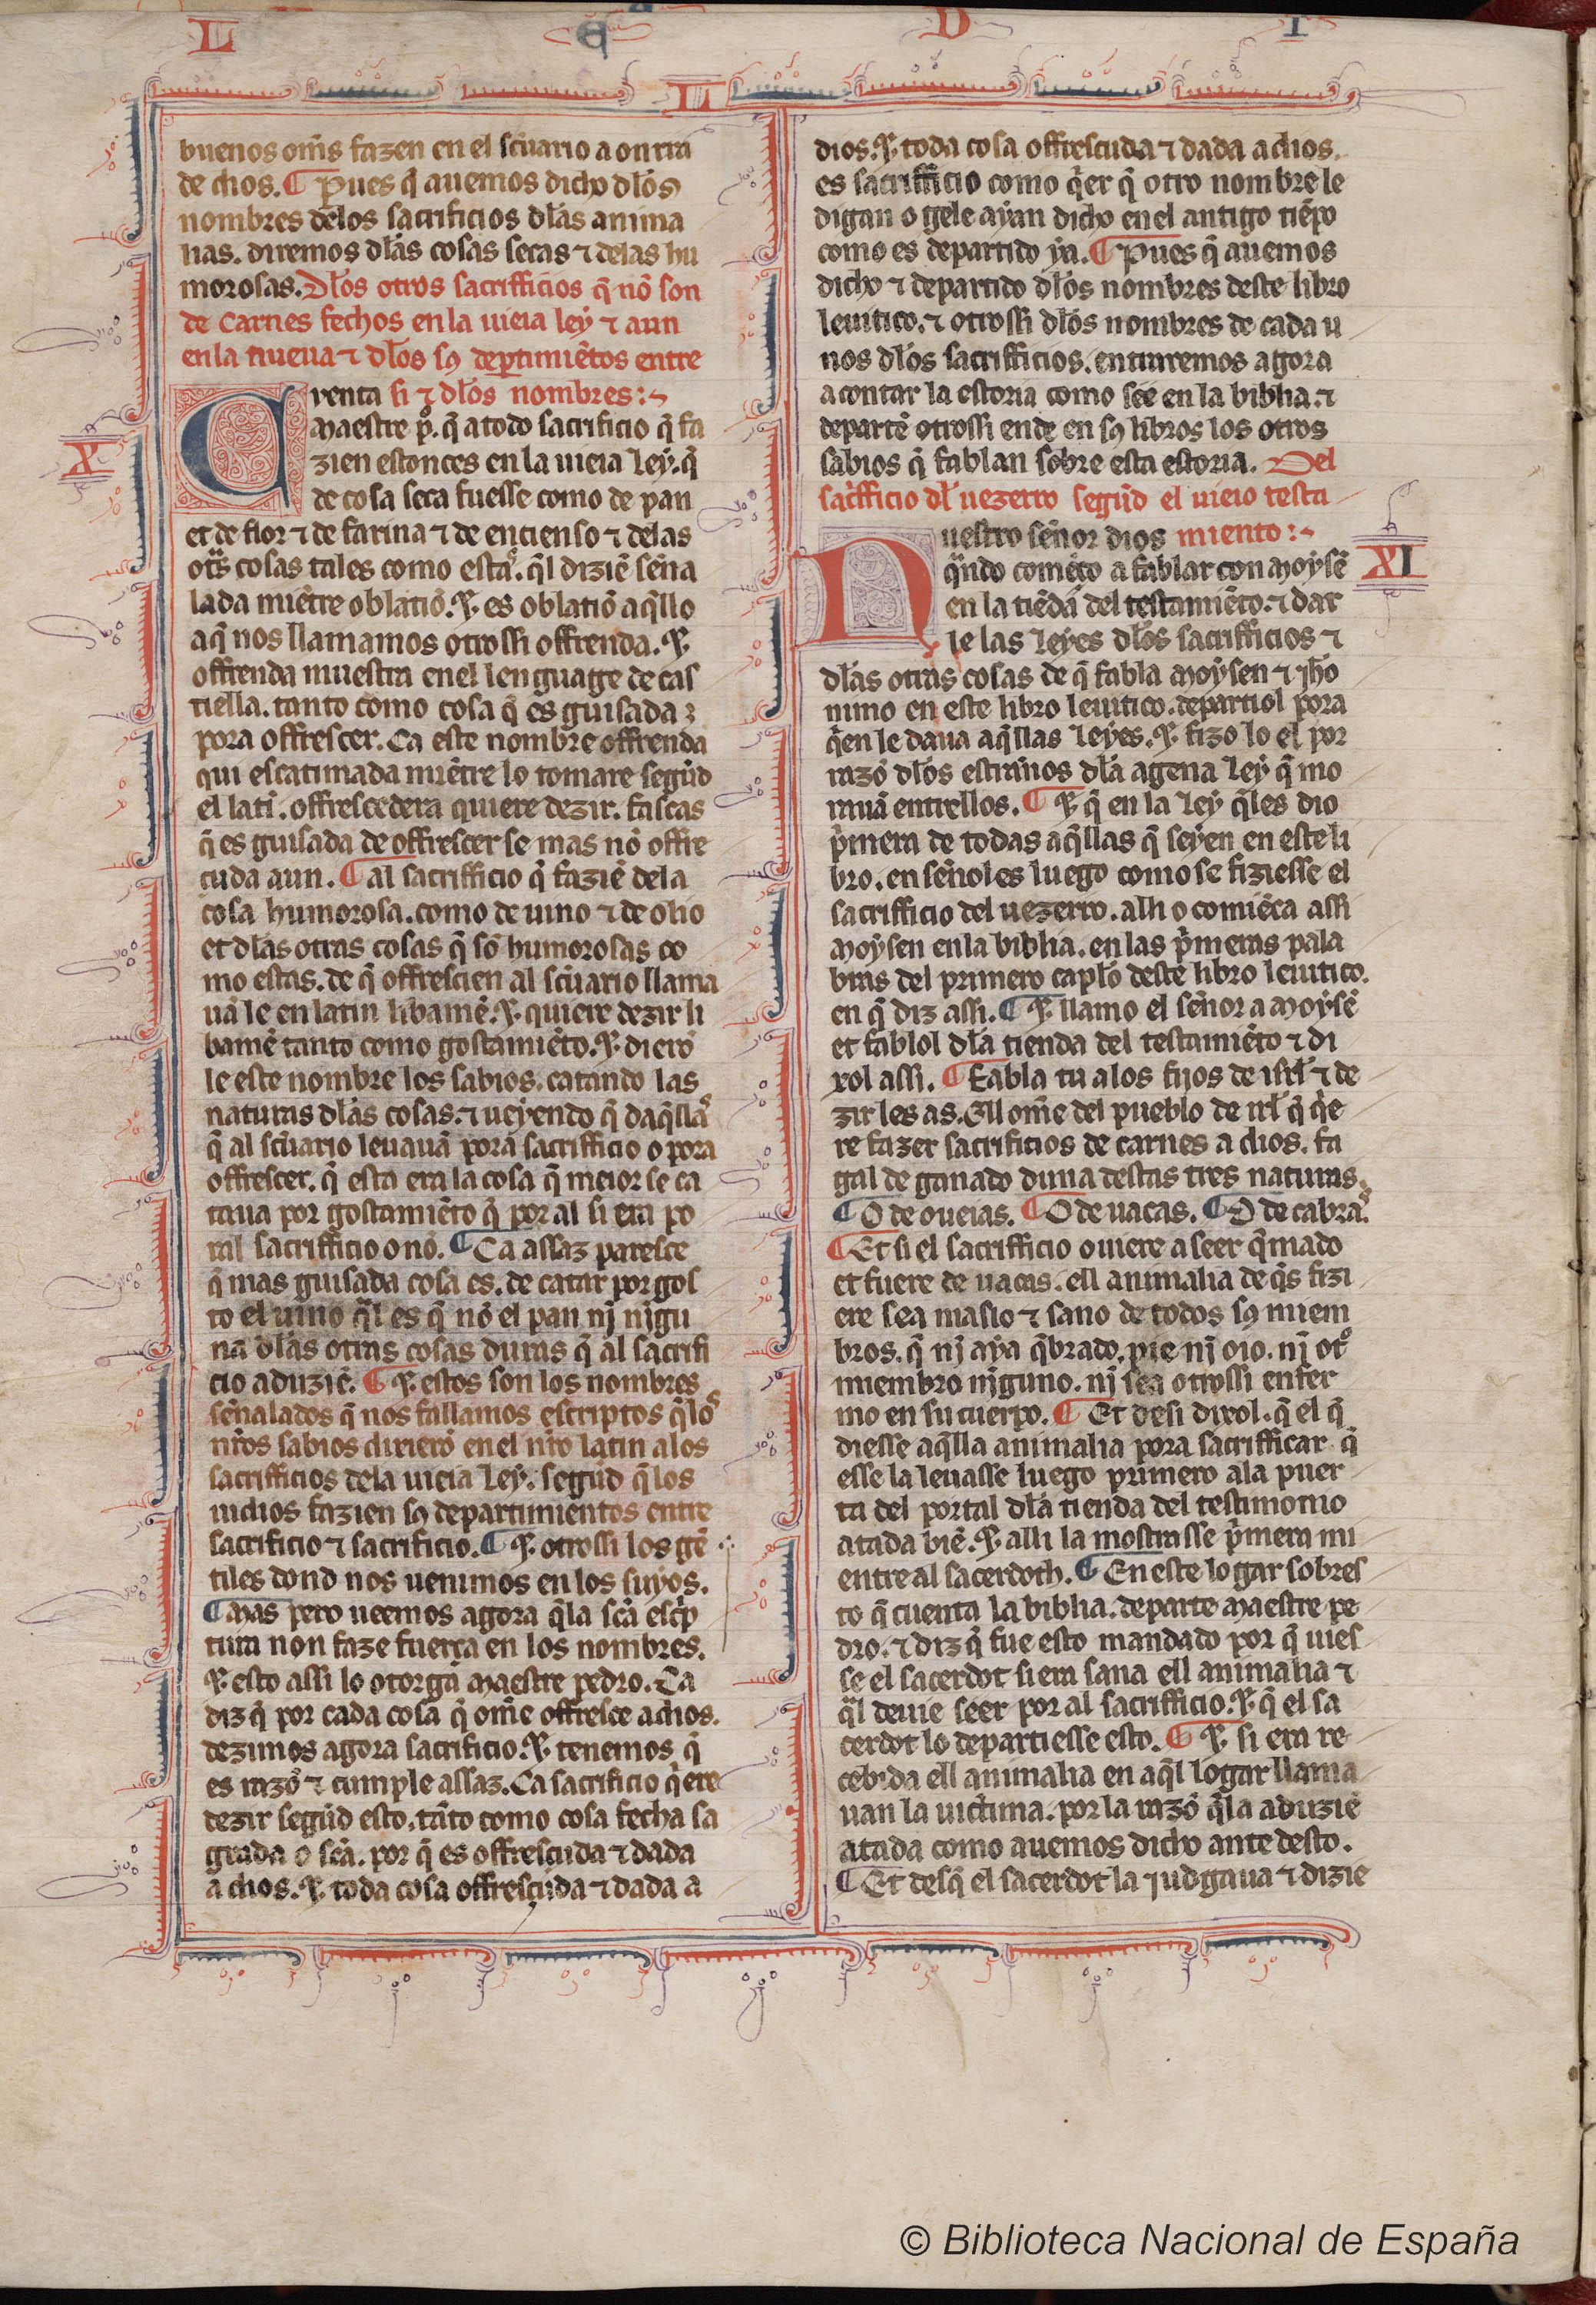 L E D I
buenos om̃s fazen en el sc̃uario a onrra
de dios. ¶ Pues q̃ auemos dicho dl̃os
nombres delos sacrificios dl̃as anima
lias. diremos dl̃as cosas secas ⁊ delas hu
morosas. Dl̃os otros sacrifficios q̃ nõ son
de carnes fechos en la uieia ley ⁊ aun
en la nueua ⁊ dl̃os sꝯ dep̃timiẽtos entre
Cuenta si ⁊ dl̃os nombres:~
X
maestre p̃o. q̃ a todo sacrificio q̃ fa
zien estonces en la uieia ley. q̃
de cosa seca fuesse como de pan
et de flor ⁊ de farina ⁊ de encienso ⁊ delas
ot̃s cosas tales como estas. q̃l diziẽ sẽna
lada miẽtre oblatiõ. ⁊. es oblatiõ aq̃llo
aq̃ nos llamamos otrossi offrenda. ⁊.
offrenda muestra en el lenguage de cas
tiella. tanto como cosa q̃ es guisada
pora offrescer. Ca este nombre offrenda
qui escatimada miẽtre lo tomare segũd
el latĩ. offrescedera quiere dezir. fascas
q̃ es guisada de offrescer se mas nõ offre
çuda aun. ¶ al sacrifficio q̃ faziẽ dela
cosa humorosa. como de uino ⁊ de olio
et dl̃as otras cosas q̃ sõ humorosas co
mo estas. de q̃ offrescien al sc̃uario llama
uã le en latin libamẽ. ⁊. quiere dezir li
bamẽ tanto como gostamiẽto. ⁊. dierõ
le este nombre los sabios. catando las
naturas dl̃as cosas. ⁊ ueyendo q̃ daq̃llas
q̃ al sc̃uario leuauã porã sacrifficio o pora
offrescer. q̃ esta era la cosa q̃ meior se ca
taua por gostamiẽto q̃ por al si era po
ral sacrifficio o nõ. ¶ Ca assaz paresce
q̃ mas guisada cosa es. de catar por gos
to el uino q̃l es q̃ nõ el pan nj njgu
na dl̃as otras cosas duras q̃ al sacrifi
cio aduziẽ. ¶ ⁊. estos son los nombres
sẽnalados q̃ nos fallamos escriptos q̃los
nr̃os sabios dixierõ en el nr̃o latin alos
sacrifficios dela uieia ley. segũd q̃los
iudios fazien sꝯ departimientos entre
sacrificio ⁊ sacrificio. ¶ ⁊. otrossi los gẽ
tiles dond nos uenimos en los suyos.
¶ Mas pero ueemos agora q̃la sc̃a esc̃p
tura non faze fuerça en los nombres.
⁊. esto assi lo otorga maestre pedro. Ca
diz q̃ por cada cosa q̃ om̃e offresce a dios.
dezimos agora sacrificio. ⁊. tenemos q̃
es razõ ⁊ cumple assaz. Ca sacrificio q̃ere
dezir segũd esto. tãto como cosa fecha sa
grada o sc̃a. por q̃ es offresçuda ⁊ dada
a dios. ⁊. toda cosa offresçuda ⁊ dada a
dios. ⁊. toda cosa offresçuda ⁊ dada a dios.
es sacrifficio como q̃er q̃ otro nombre le
digan o gele ayan dicho en el antigo tiẽpo
como es departido ya. ¶ Pues q̃ auemos
dicho ⁊ departido dl̃os nombres deste libro
leuitico. ⁊ otrossi dl̃os nombres de cada u
nos dl̃os sacrifficios. entraremos agora
a contar la estoria como see en la biblia. ⁊
departẽ otrossi ende en sꝯ libros los otros
sabios q̃ fablan sobre esta estoria. Del
sac̃fficio dl̃ uezerro segũd el uieio testa
Nuestro sẽnor dios miento:~
XI
q̃ndo comẽço a fablar con moysẽ
en la tiẽda del testamiẽto. ⁊ dar
le las leyes dl̃os sacrifficios ⁊
dl̃as otras cosas de q̃ fabla moysen ⁊ jho
nimo en este libro leuitico. departiol pora
q̃en le daua aq̃llas leyes. ⁊. fizo lo el por
razõ dl̃os estrãnos dl̃a agena ley q̃ mo
rauã entrellos. ¶ ⁊. q̃ en la ley q̃les dio
p̃mera de todas aq̃llas q̃ seyen en este li
bro. ensẽnoles luego como se fiziesse el
sacrifficio del uezerro. alli o comiẽça assi
moysen en la biblia. en las p̃meras pala
bras del primero capl̃o deste libro leuitico.
en q̃ diz assi. ¶ ⁊. llamo el sẽnor a moysẽ
et fablol dl̃a tienda del testamiẽto ⁊ di
xol assi. ¶ Fabla tu alos fijos de isrl̃ ⁊ de
zir les as. Ell om̃e del pueblo de irl̃ q̃ q̃e
re fazer sacrificios de carnes a dios. fa
gal de ganado duna destas tres naturas.
¶ O de oueias. ¶ O de uacas. ¶ O de cabras.
¶ Et si el sacrifficio ouiere a seer q̃mado
et fuere de uacas. ell animalia de q̃s fizi
ere sea maslo ⁊ sano de todos sꝯ miem
bros. q̃ nj aya q̃brado. pie nj oio. nj ot̃o
miembro njguno. nj sea otrossi enfer
mo en su cuerpo. ¶ Et desi dixol. q̃ el q̃
diesse aq̃lla animalia pora sacrifficar q̃
esse la leuasse luego primero ala puer
ta del portal dl̃a tienda del testimonio
atada biẽ. ⁊. alli la mostrasse p̃mera mi
entre al sacerdoth. ¶ En este logar sobres
to q̃ cuenta la biblia. departe maestre pe
dro. ⁊ diz q̃ fue esto mandado por q̃ uies
se el sacerdot si era sana ell animalia ⁊
q̃l deuie seer por al sacrifficio. ⁊. q̃ el sa
cerdot lo departiesse esto. ¶ ⁊. si era re
cebida ell animalia en aq̃l logar llama
uan la uictima. por la razõ q̃la aduziẽ
atada como auemos dicho ante desto.
¶ Et desq̃ el sacerdot la judgaua ⁊ dizie
© Biblioteca Nacional de España